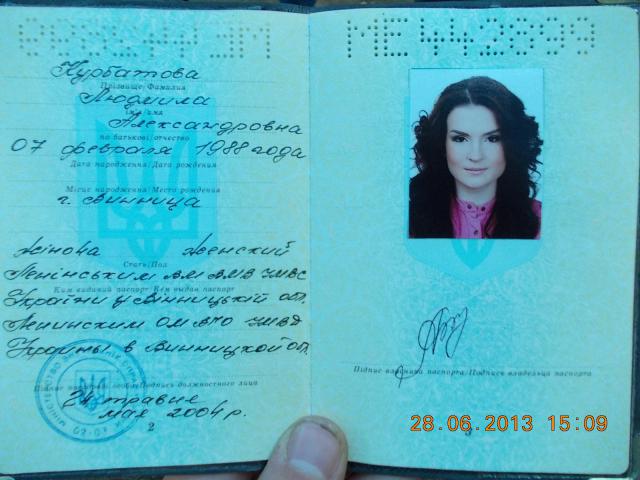 МЕ442899
Курбатова
Прізвище/Фамилия
Людмила
Ім'я/Имя
Александровна
по батькові/отчество
07 февраля 1988 года
Дата народження/Дата рождения
Місце народження/Место рождения
г. Винница
Жіноча Женский
Стать/Пол
Ленінським
Ким виданий паспорт/Кем выдан паспорт
України у Вінницькій обл.
Ленинским
Украины в Винницкой обл.
Підпис посадової особи/Подпись должностного лица
24 травня
мая 2004 р.
2
МЕ442899
Підпис власника паспорта/Подпись владельца паспорта
3
28.06.2013 15:09